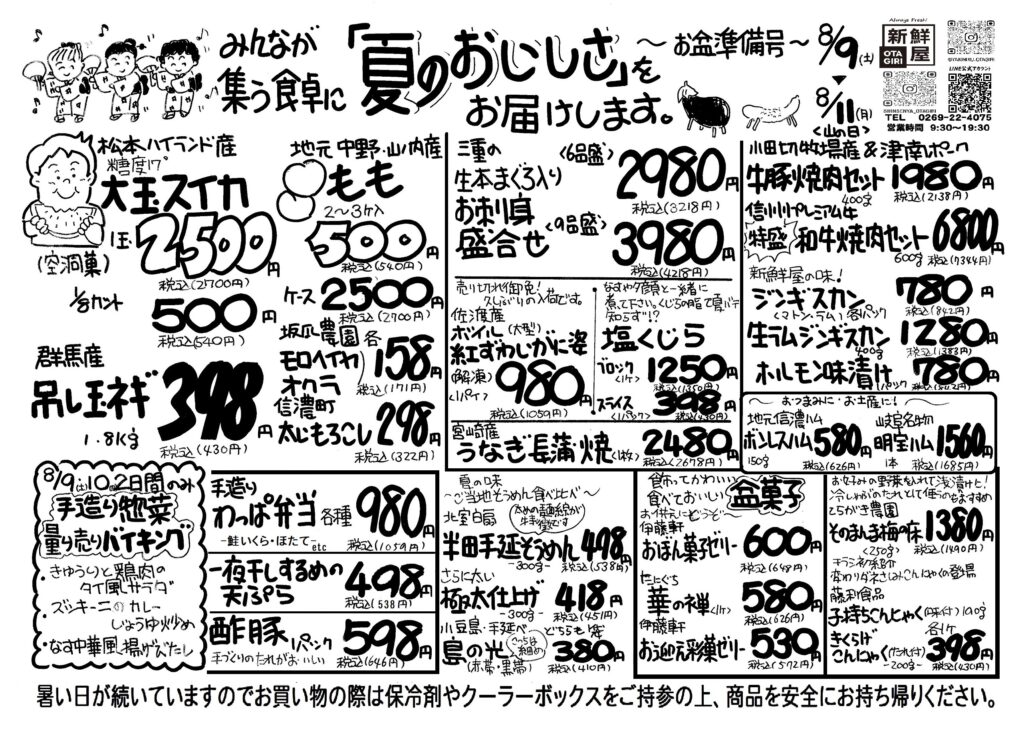 みんなが
集う食卓に
「夏のおいしさ」を
お届けします。
～お盆準備号～
8/9(土)
8/11(月)
<山の日>
Always Fresh!
新鮮屋
OTAGIRI
LINE公式アカウント
SHINSENYA_OTAGIRI
TEL 0269-22-4075
営業時間 9:30～19:30
松本ハイランド産
糖度17°
大玉スイカ
1玉 2,500円
(空洞菓)
税込(2700円)
1/6カット
500円
税込(540円)
群馬産
吊し玉ネギ
398円
1.8kg
税込(430円)
地元中野・山ノ内産
もも
2～3ヶ入
500円
税込(540円)
ケース2500円
税込(2700円)
坂爪農園 各
モロヘイヤ
オクラ
158円
税込(171円)
信濃町
とうもろこし
298円
税込(322円)
三重の
生本まぐろ入り
お刺り身
盛合せ
<6品盛>
2980円
税込(3218円)
<9品盛>
3980円
税込(4218円)
売り切れ御免!
久しぶりの入荷です。
佐渡産
ボイル(大型)
紅ずわいがに姿
(解凍)
<1パイ>
980円
税込(1059円)
なすや夕顔と一緒に
煮て下さい。くじらの脂で夏バテ
知らず!?
塩くじら
ブロック
<1ケ>
1250円
税込(1350円)
スライス
<1パック>
398円
税込(430円)
宮崎産
うなぎ長蒲焼<1枚>
2480円
税込(2678円)
小田切牧場産&津南ポーク
牛豚焼肉セット
400g
1980円
税込(2138円)
信州プレミアム牛
特盛 和牛焼肉セット
600g
6800円
税込(7344円)
新鮮屋の味!
ジンギスカン
<マトン・ラム>各1パック
780円
税込(842円)
生ラムジンギスカン
400g
1280円
税込(1383円)
ホルモン味漬け
1パック
780円
税込(842円)
～おつまみに・お土産に!～
地元信濃ハム
ボンレスハム
150g
580円
税込(626円)
岐阜名物
明宝ハム
1本
1560円
税込(1685円)
8/9(土)10.2日間のみ
手造り惣菜
量り売りバイキング
・きゅうりと鶏肉の
タイ風サラダ
・ズッキーニのカレー
しょうゆ炒め
・なす中華風揚げびたし
手造り
わっぱ弁当 各種
-鮭いくら・ほたて-etc
980円
税込(1059円)
一夜干しするめの
天ぷら
498円
税込(538円)
酢豚1パック
手づくりのたれがおいしい
598円
税込(646円)
夏の味
～ご当地そうめん食べ比べ～
北室白扇
太めの麺線が特徴です
半田手延そうめん
-300g-
498円
税込(538円)
さらに太い
極太仕上げ
-300g-
418円
税込(451円)
小豆島・手延べ
島の光
(赤帯・黒帯)
380円
税込(410円)
飾ってかわいい
食べておいしい
お供えにどうぞ～
盆菓子
伊藤軒
おぼん菓子ゼリー
600円
税込(648円)
たにぐち
華の禅<1ケ>
580円
税込(626円)
伊藤軒
お迎え彩菓ゼリー
530円
税込(572円)
お好みの野菜を入れて浅漬けに!
冷しゃぶのたれとして使うのもおすすめ
とちがき農園
そのまんま梅の味
<250g>
1380円
税込(1490円)
チラシ初紹介
変わりダネさしみこんにゃくの登場
藤和食品
子持ちこんにゃく
各1ケ
きくらげ
こんにゃく(たれ付)
-200g-
398円
税込(430円)
暑い日が続いていますのでお買い物の際は保冷剤やクーラーボックスをご持参の上、商品を安全にお持ち帰りください。